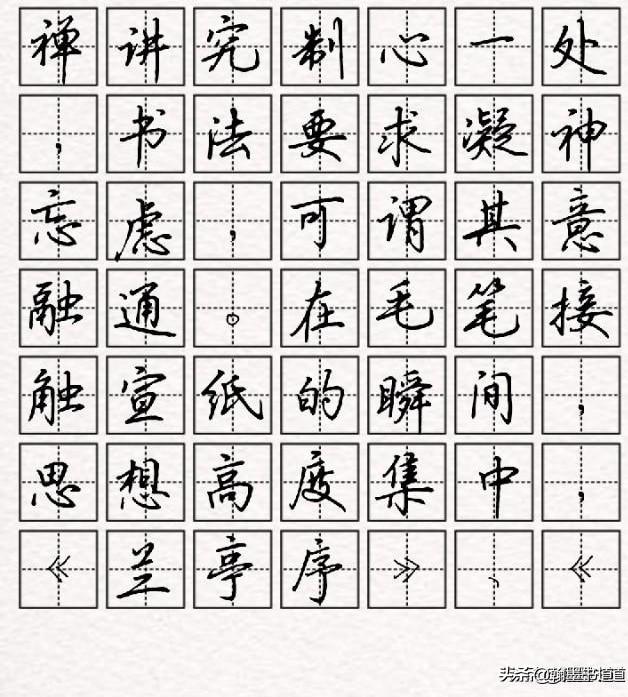 禅讲究制心一处
，书法要求凝神
忘虑，可谓其意
融通。在毛笔接
触宣纸的瞬间，
思想高度集中，
《兰亭序》、《
头条@翰墨书道